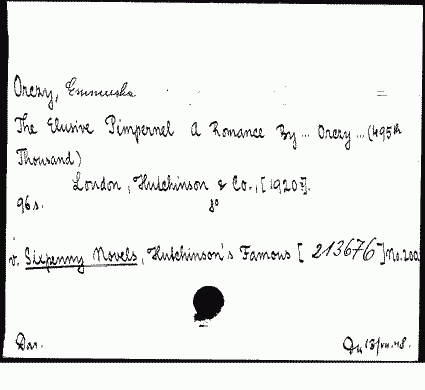 Orczy, Emmuska
The Elusive Pimpernel A Romance By ... Orczy ... (495th
Thousand)
London, Hutchinson & Co., [1920?].
96 s. 8°
v. Sixpenny Novels, Hutchinson's Famous [213676] No. 200
Dar. 18/VII.48.